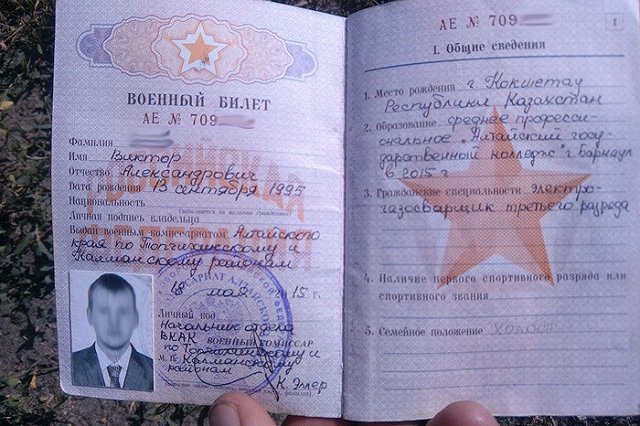 ВОЕННЫЙ БИЛЕТ
АЕ № 709
Фамилия
Имя Виктор
Отчество Александрович
Дата рождения 13 сентября 1995
Национальность
Личная подпись владельца
Выдан военным комиссариатом Алтайского
края по Топчихинскому и
Калманскому районам
18 мая 15 г.
Личный код
Начальник отдела
ВКАК ВОЕННЫЙ КОМИССАР
по Топчихинскому и
М. П. Калманскому
районам
К. Эллер
АЕ № 709
1
I. Общие сведения
1. Место рождения г. Кокшетау
Республики Казахстан
2. Образование среднее професси-
ональное "Алтайский госу-
дарственный колледж" г. Барнаул
в 2015 г
3. Гражданские специальности электро-
газосварщик третьего разряда
4. Наличие первого спортивного разряда или
спортивного звания
5. Семейное положение холост